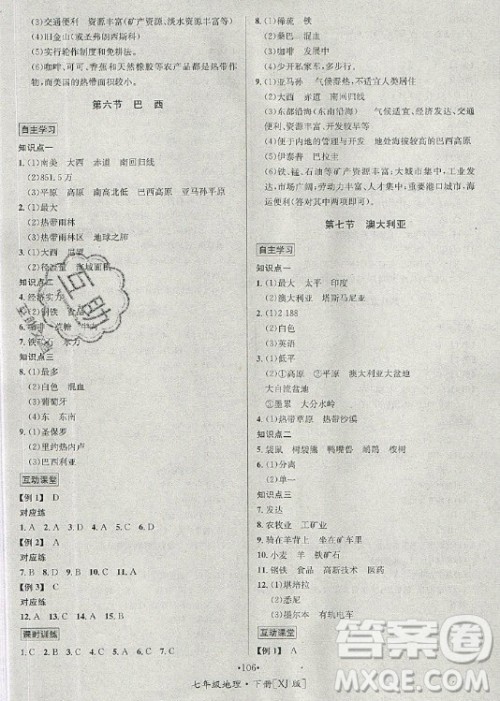 (3)交通便利 资源丰富(矿产资源、淡水资源等)
(4)旧金山(或圣弗朗西斯科)
(5)实行轮作制度和休耕制度。
(6)咖啡、香蕉、天然橡胶等经济作物属于热带作物,而美国的热带面积较小。
第六节 巴 西
自主学习
知识点一
1. (1)南美 大西 赤道 南回归线
(2)851.5万
(3)平原 高原 北 巴西高原 亚马孙平原
2. (1)最大
(2)热带雨林
(3)热带雨林 地球之肺
3. (1)大西 温暖
(2)径流量 流域面积
知识点二
4. 经济实力
5. (2)钢铁 食品
6. 咖啡 甘蔗
7. (1)铁 水 万
知识点三
8. (1)最多
(2)白色 混血
(3)葡萄牙
(4)东 东南
9. (1)圣保罗
(3)巴西利亚
互动课堂
【例1】 D
对应练
1. A 2. A 3. A 4. B 5. C 6. D
【例2】 A
对应练
7. B 8. D 9. D 10. C 11. B
【例3】 C
对应练
12. A 13. A 14. D 15. B 16. A
课时训练
1. C 2. B 3. C 4. C 5. C 6. D 7. A
8. (1)稀疏 铁
(2)桑巴 混血
(3)咖啡 水能
(4)少开私家车,多步行等。
9. (1)亚马孙 气候过于湿热,不适宜人类居住
(2)大西 赤道
(3)东部沿海(东南沿海) 气候适宜,经济发达
(4)便于内地的管理与开发 地处内陆,交通不便
(5)伊泰普 巴拉圭
(6)铁、锰、铝土等矿产资源丰富;大城市集中,市场广阔;劳动力丰富;工业基础好;科技集中;重要港口城市集中,水陆交通便利等。
第七节 澳大利亚
自主学习
知识点一
1. (1)最大 太平 印度
(2)澳大利亚 塔斯马尼亚
2. (1)2 188
(2)白色
(3)英语
3. (1)低平
(2)①高原 ②平原 澳大利亚大盆地
大自流盆地
③墨累 大分水岭
4. (1)热带草原 热带沙漠
知识点二
5. 袋鼠 树袋熊 鸭嘴兽 鸸鹋
6. (1)分离
(2)单一
知识点三
7. 发达
8. 农牧业 工矿业
9. 骑在羊背上 坐在矿车里
10. 小麦 羊 铁矿石
11. 钢铁 食品 高新技术 国民经济
12. (1)堪培拉
(2)悉尼
(3)墨尔本 有轨电车
互动课堂
【例1】 C
·106·
七年级地理·下册[XJ版]
互助